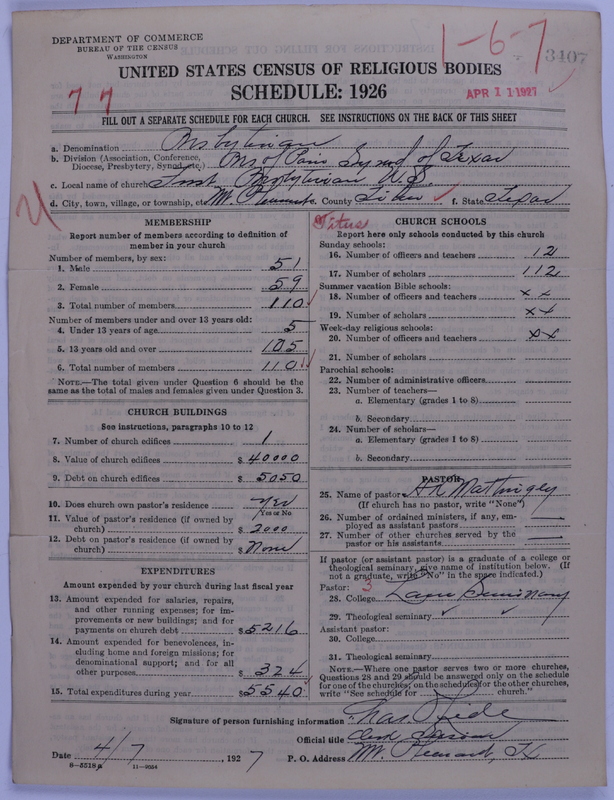 DEPARTMENT OF COMMERCE
BUREAU OF THE CENSUS
WASHINGTON
1-6-7
3407
UNITED STATES CENSUS OF RELIGIOUS BODIES
SCHEDULE: 1926
77
APR 11 1927
FILL OUT A SEPARATE SCHEDULE FOR EACH CHURCH. SEE INSTRUCTIONS ON THE BACK OF THIS SHEET
a. Denomination Presbyterian
b. Division (Association, Conference, Diocese, Presbytery, Synod, etc.) Pres of Paris Synod of Texas
c. Local name of church First Presbyterian U.S.
d. City, town, village, or township, etc. Mt. Pleasant e. County Titus f. State Texas
Titus
MEMBERSHIP
Report number of members according to definition of
member in your church
Number of members, by sex:
1. Male 51
2. Female 59
3. Total number of members 110
Number of members under and over 13 years old:
4. Under 13 years of age 5
5. 13 years old and over 105
6. Total number of members 110
NOTE.—The total given under Question 6 should be the
same as the total of males and females given under Question 3.
CHURCH BUILDINGS
See instructions, paragraphs 10 to 12
7. Number of church edifices 1
8. Value of church edifices $ 40000
9. Debt on church edifices $ 5050
10. Does church own pastor's residence Yes
Yes or No
11. Value of pastor's residence (if owned by
church) $ 2000
12. Debt on pastor's residence (if owned by
church) $ None
EXPENDITURES
Amount expended by your church during last fiscal year
13. Amount expended for salaries, repairs,
and other running expenses; for im-
provements or new buildings; and for
payments on church debt $ 5216
14. Amount expended for benevolences, in-
cluding home and foreign missions; for
denominational support; and for all
other purposes $ 324
15. Total expenditures during year $ 5540
CHURCH SCHOOLS
Report here only schools conducted by this church
Sunday schools:
16. Number of officers and teachers 12
17. Number of scholars 112
Summer vacation Bible schools:
18. Number of officers and teachers x x
19. Number of scholars x x
Week-day religious schools:
20. Number of officers and teachers x x
21. Number of scholars
Parochial schools:
22. Number of administrative officers
23. Number of teachers—
a. Elementary (grades 1 to 8)
b. Secondary
24. Number of scholars—
a. Elementary (grades 1 to 8)
b. Secondary
PASTOR
25. Name of pastor
(If church has no pastor, write "None")
26. Number of ordained ministers, if any, em-
ployed as assistant pastors —
27. Number of other churches served by the
pastor or his assistants —
If pastor (or assistant pastor) is a graduate of a college or
theological seminary, give name of institution below. (If
not a graduate, write "No" in the space indicated.)
Pastor: 3
28. College Seminary
29. Theological seminary
Assistant pastor:
30. College
31. Theological seminary
NOTE.—Where one pastor serves two or more churches,
Questions 28 and 29 should be answered only on the schedule
for one of the churches; on the schedules for the other churches,
write "See schedule for church."
Signature of person furnishing information
Official title Clerk Session
Date 4/7, 1927 P. O. Address Mt. Pleasant, Tx
8—5518a 11—9554